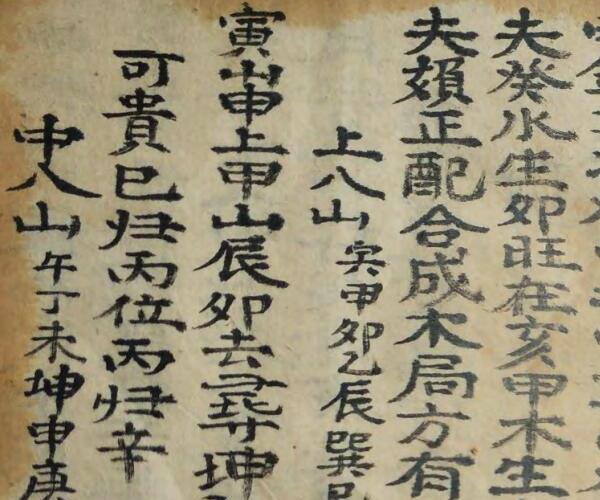 夫癸水生卯旺在亥甲木生
夫頦正配合成木局方有
上八山寅甲卯乙辰巽巳
寅山申上甲山辰卯去尋坤
可貴巳归丙位丙归辛
中八山午丁未坤申庚